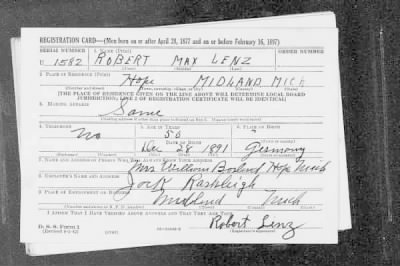 REGISTRATION CARD—(Men born on or after April 28, 1877 and on or before February 16, 1897)
SERIAL NUMBER 1. NAME (Print) ORDER NUMBER
U 1582 ROBERT MAX LENZ
2. PLACE OF RESIDENCE (Print)
Hope MIDLAND MICH
[THE PLACE OF RESIDENCE GIVEN ON THE LINE ABOVE WILL DETERMINE LOCAL BOARD
JURISDICTION; LINE 2 OF REGISTRATION CERTIFICATE WILL BE IDENTICAL]
3. MAILING ADDRESS
Same
4. TELEPHONE 5. AGE IN YEARS 6. PLACE OF BIRTH
No 50
DATE OF BIRTH
Dec 28 1891 Germany
7. NAME AND ADDRESS OF PERSON WHO WILL ALWAYS KNOW YOUR ADDRESS
Mrs William Hope Mich
8. EMPLOYER'S NAME AND ADDRESS
9. PLACE OF EMPLOYMENT OR BUSINESS
Midland Mich
I AFFIRM THAT I HAVE VERIFIED ABOVE ANSWERS AND THAT THEY ARE TRUE.
D. S. S. Form 1
Robert Lenz